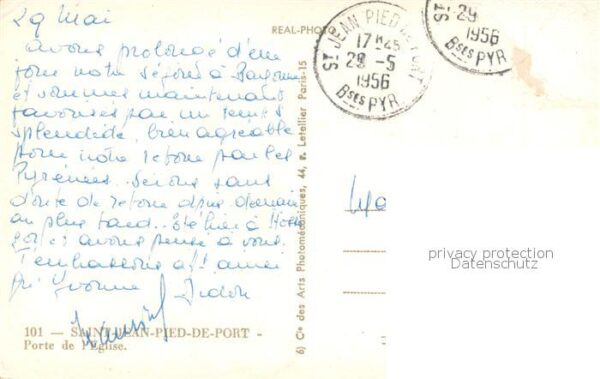 29 Mai
avons prolongé d'un
jour notre séjour à Bayonne
et sommes maintenant
favorisés par un temps
splendide, bien agréable
pour notre retour par les
Pyrénées. Serons sans
doute de retour après demain
au plus tard. à
avons pensé à vous.
t'embrassons
Yvonne
101 — SAINT-JEAN-PIED-DE-PORT -
Porte de l'Église.
REAL-PHOTO
6) Cie des Arts Photomécaniques, 44, r. Letellier Paris-15
ST JEAN PIED DE PORT
17H45
29 -5
1956
Bses PYR
ST
29
1956
Bses PYR
privacy protection
Datenschutz